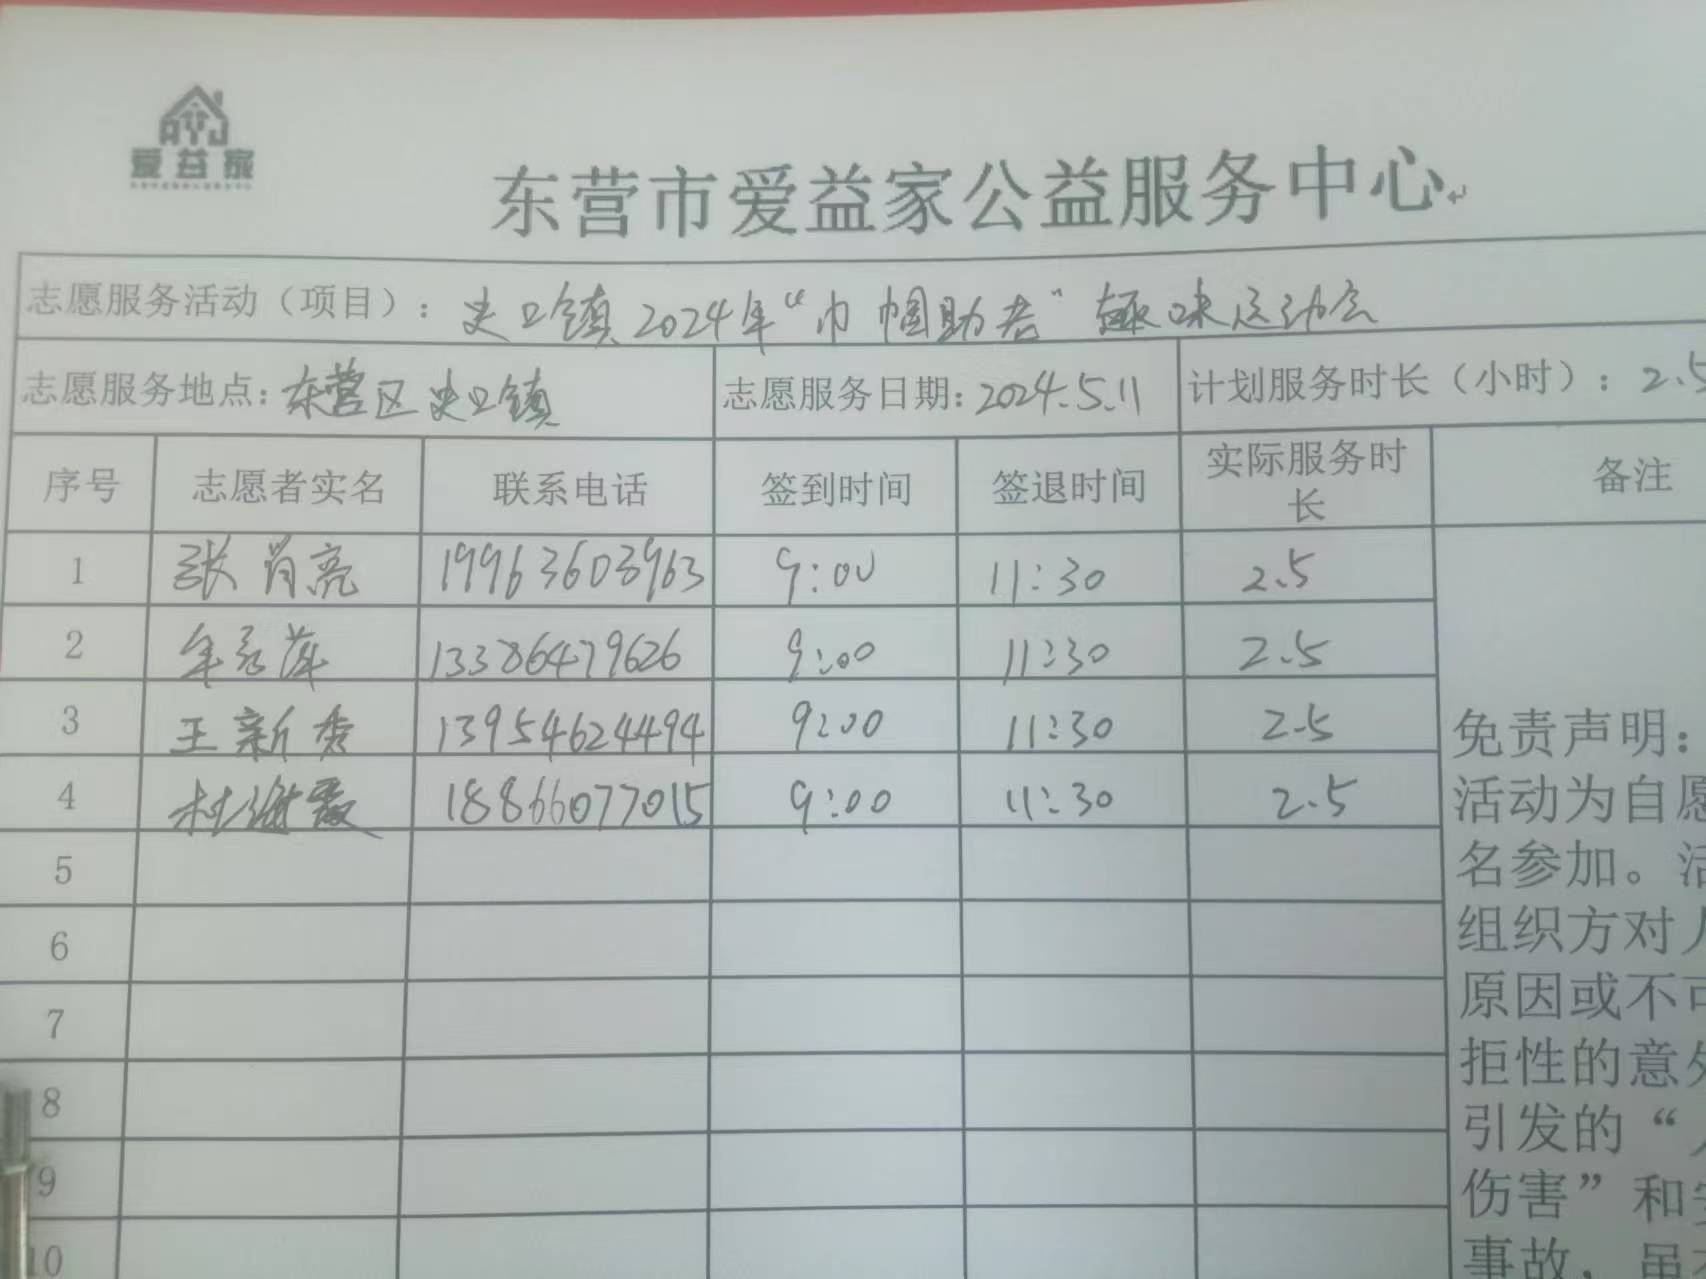 爱益家
东营市爱益家公益服务中心
志愿服务活动（项目）：史口镇2024年“巾帼助老”趣味运动会
志愿服务地点：东营区史口镇 志愿服务日期：2024.5.11 计划服务时长（小时）：2.5
序号 志愿者实名 联系电话 签到时间 签退时间 实际服务时长 备注
1 张肖亮 19963603963 9:00 11:30 2.5
2 13386479626 9:00 11:30 2.5
3 王新秀 13954624494 9:00 11:30 2.5
4 18866077015 9:00 11:30 2.5
5
6
7
8
9
10
免责声明：
活动为自愿
名参加。活
组织方对
原因或不可
拒性的意外
引发的“
伤害”和
事故，虽